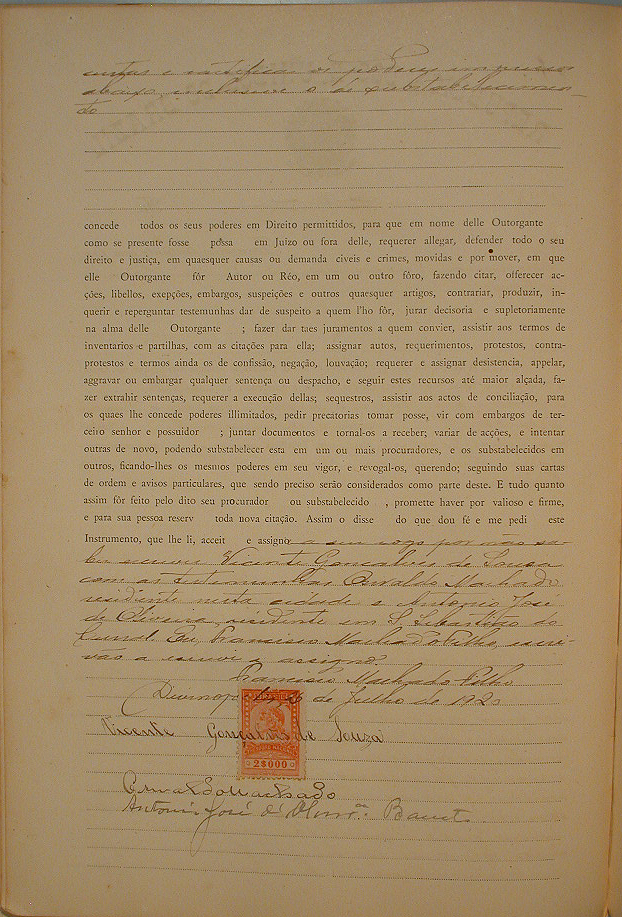 custas e ratifica os poderes impressos
abaixo, inclusive o de substabelecimen-
to
concede todos os seus poderes em Direito permittidos, para que em nome delle Outorgante
como se presente fosse possa em Juizo ou fora delle, requerer allegar, defender todo o seu
direito e justiça, em quaesquer causas ou demanda civeis e crimes, movidas e por mover, em que
elle Outorgante fôr Autor ou Réo, em um ou outro fôro, fazendo citar, offerecer ac-
ções, libellos, exepções, embargos, suspeições e outros quaesquer artigos, contrariar, produzir, in-
querir e reperguntar testemunhas dar de suspeito a quem l'ho fôr, jurar decisoria e supletoriamente
na alma delle Outorgante ; fazer dar taes juramentos a quem convier, assistir aos termos de
inventarios e partilhas, com as citações para ella; assignar autos, requerimentos, protestos, contra-
protestos e termos ainda os de confissão, negação, louvação; requerer e assignar desistencia, appelar,
aggravar ou embargar qualquer sentença ou despacho, e seguir estes recursos até maior alçada, fa-
zer extrahir sentenças, requerer a execução dellas; sequestros, assistir aos actos de conciliação, para
os quaes lhe concede poderes illimitados, pedir precatorias tomar posse, vir com embargos de ter-
ceiro senhor e possuidor ; juntar documentos e tornal-os a receber; variar de acções, e intentar
outras de novo, podendo substabelecer esta em um ou mais procuradores, e os substabelecidos em
outros, ficando-lhes os mesmos poderes em seu vigor, e revogal-os, querendo; seguindo suas cartas
de ordem e avisos particulares, que sendo preciso serão considerados como parte deste. E tudo quanto
assim fôr feito pelo dito seu procurador ou substabelecido , promette haver por valioso e firme,
e para sua pessoa reserv toda nova citação. Assim o disse do que dou fé e me pedi este
Instrumento, que lhe li, acceit e assigno a seu rogo por não sa-
ber escrever Vicente Gonçalves de Souza
com as testemunhas Oswaldo Machado
residente nesta cidade e Antonio José
de Oliveira, residente em S. Sebastião do
Curral. Eu, Francisco Machado Filho, escri-
vão a escrevi e assigno.
Francisco Machado Filho
de Julho de 1920
Vicente Gonçalves de Souza
2$000
Oswaldo Machado
Antonio José d'Olivrª